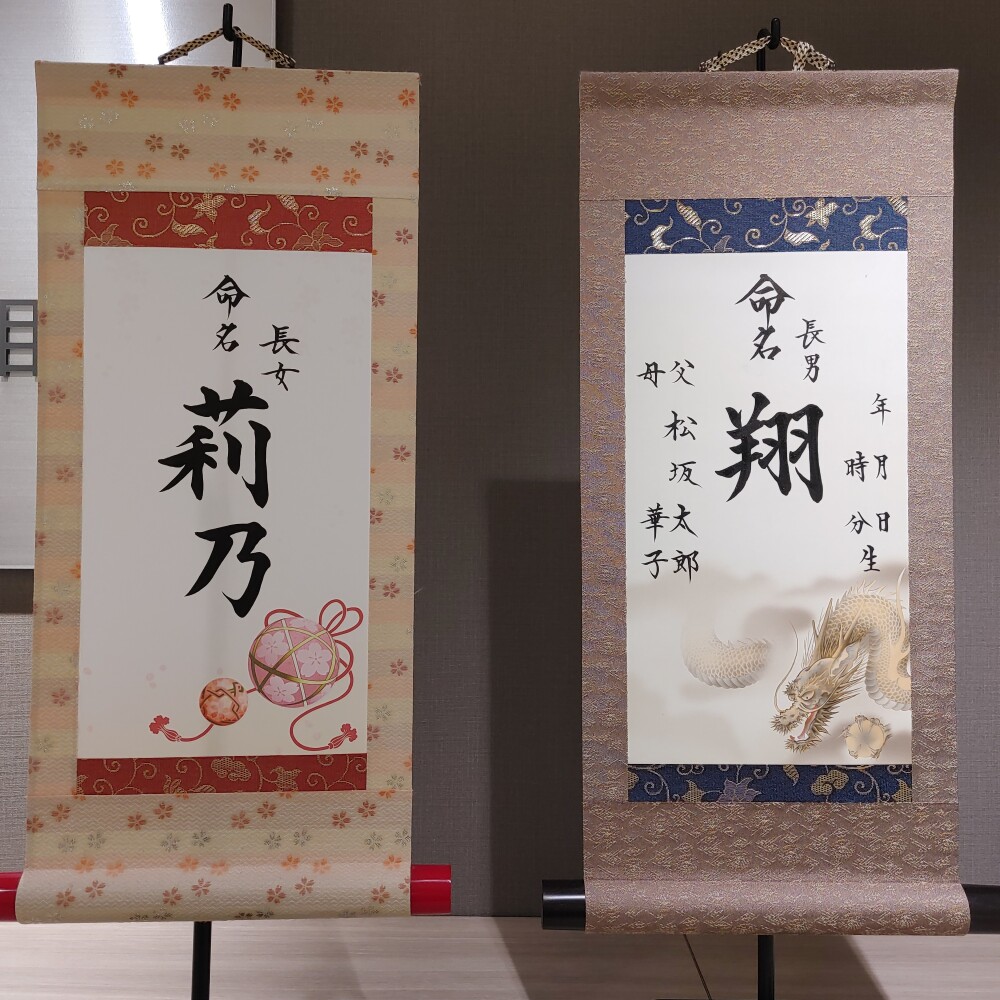 命名
長女
莉乃
命名
長男
翔
年月日
時分生
父 松坂太郎
母 華子